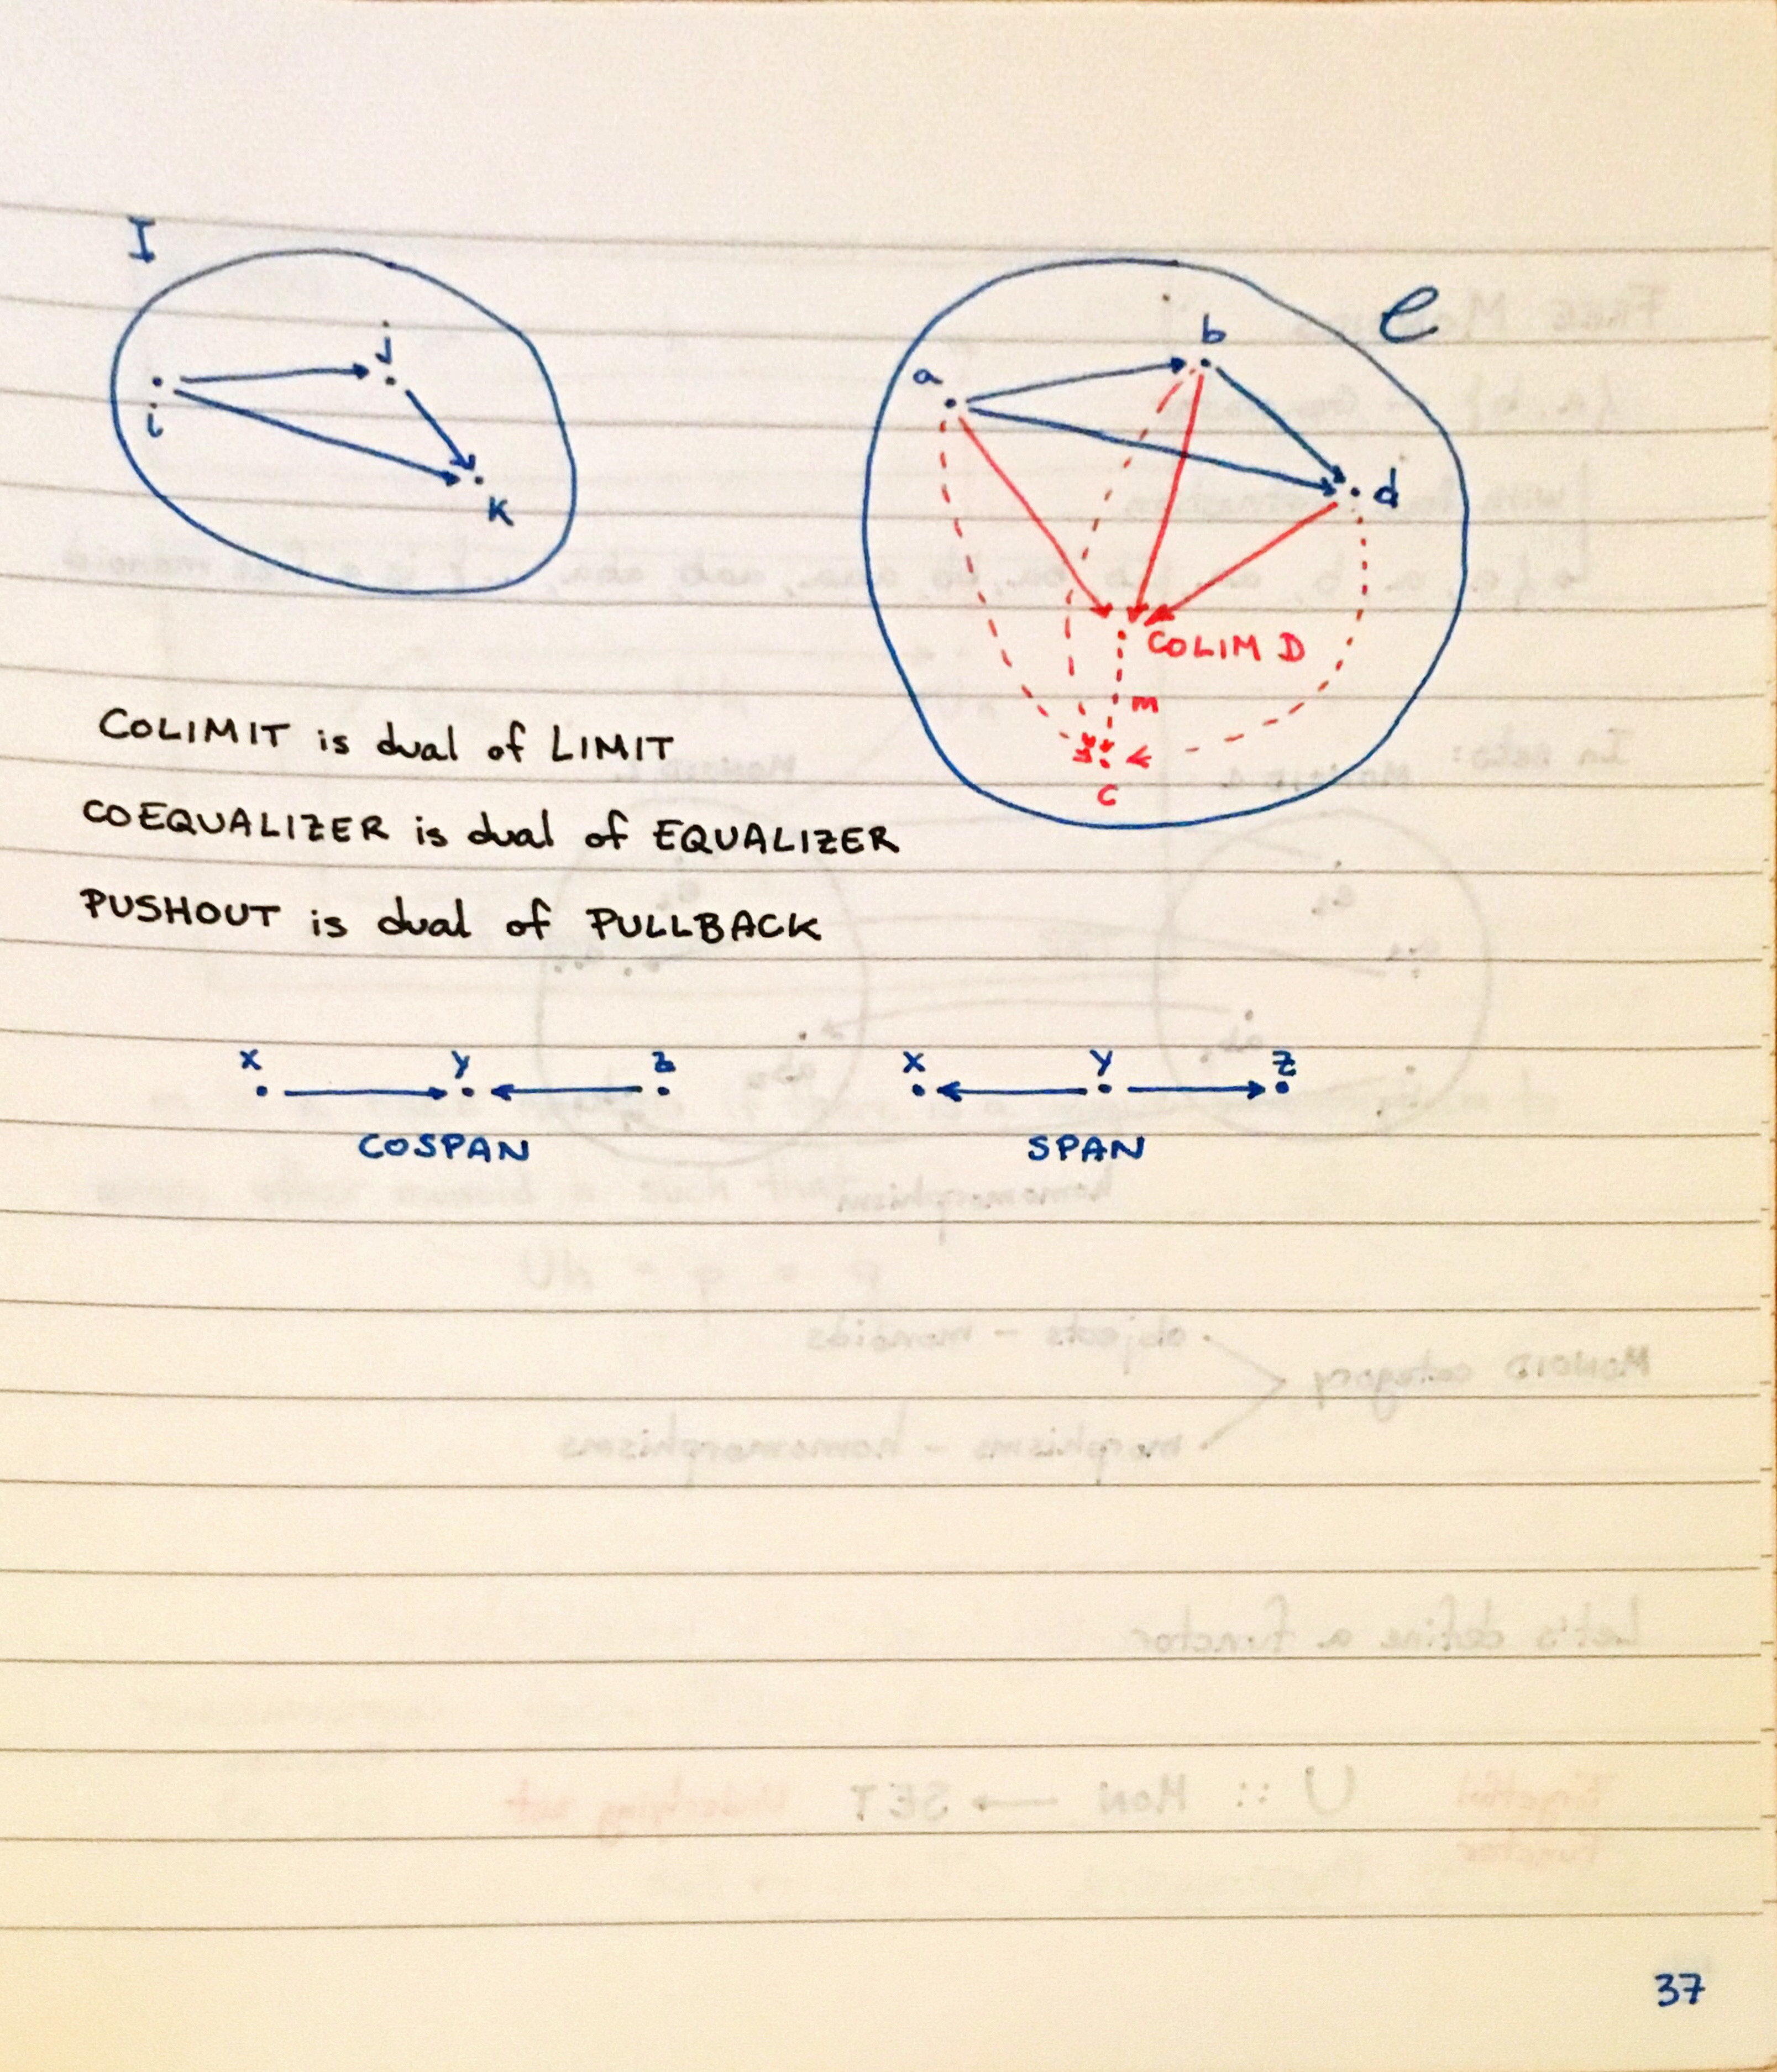 I
i
j
k
C
a
b
d
COLIM D
m
c
COLIMIT is dual of LIMIT
COEQUALIZER is dual of EQUALIZER
PUSHOUT is dual of PULLBACK
x y z
COSPAN
x y z
SPAN
37